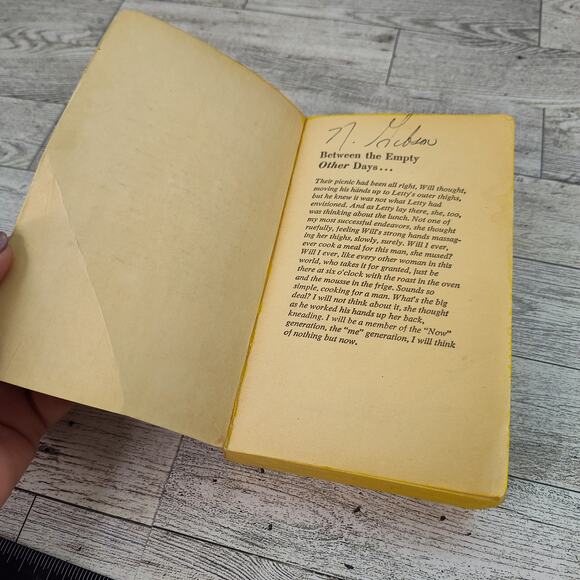 N. Gibson
Between the Empty
Other Days...
Their picnic had been all right, Will thought,
moving his hands up to Letty's outer thighs,
but he knew it was not what Letty had
envisioned. And as Letty lay there, she, too,
was thinking about the lunch. Not one of
my most successful endeavors, she thought
ruefully, feeling Will's strong hands massag-
ing her thighs, slowly, surely. Will I ever,
ever cook a meal for this man, she mused?
Will I ever, like every other woman in this
world, who takes it for granted, just be
there at six o'clock with the roast in the oven
and the mousse in the frige. Sounds so
simple, cooking for a man. What's the big
deal? I will not think about it, she thought
as he worked his hands up her back,
kneading. I will be a member of the "Now"
generation, the "me" generation, I will think
of nothing but now.